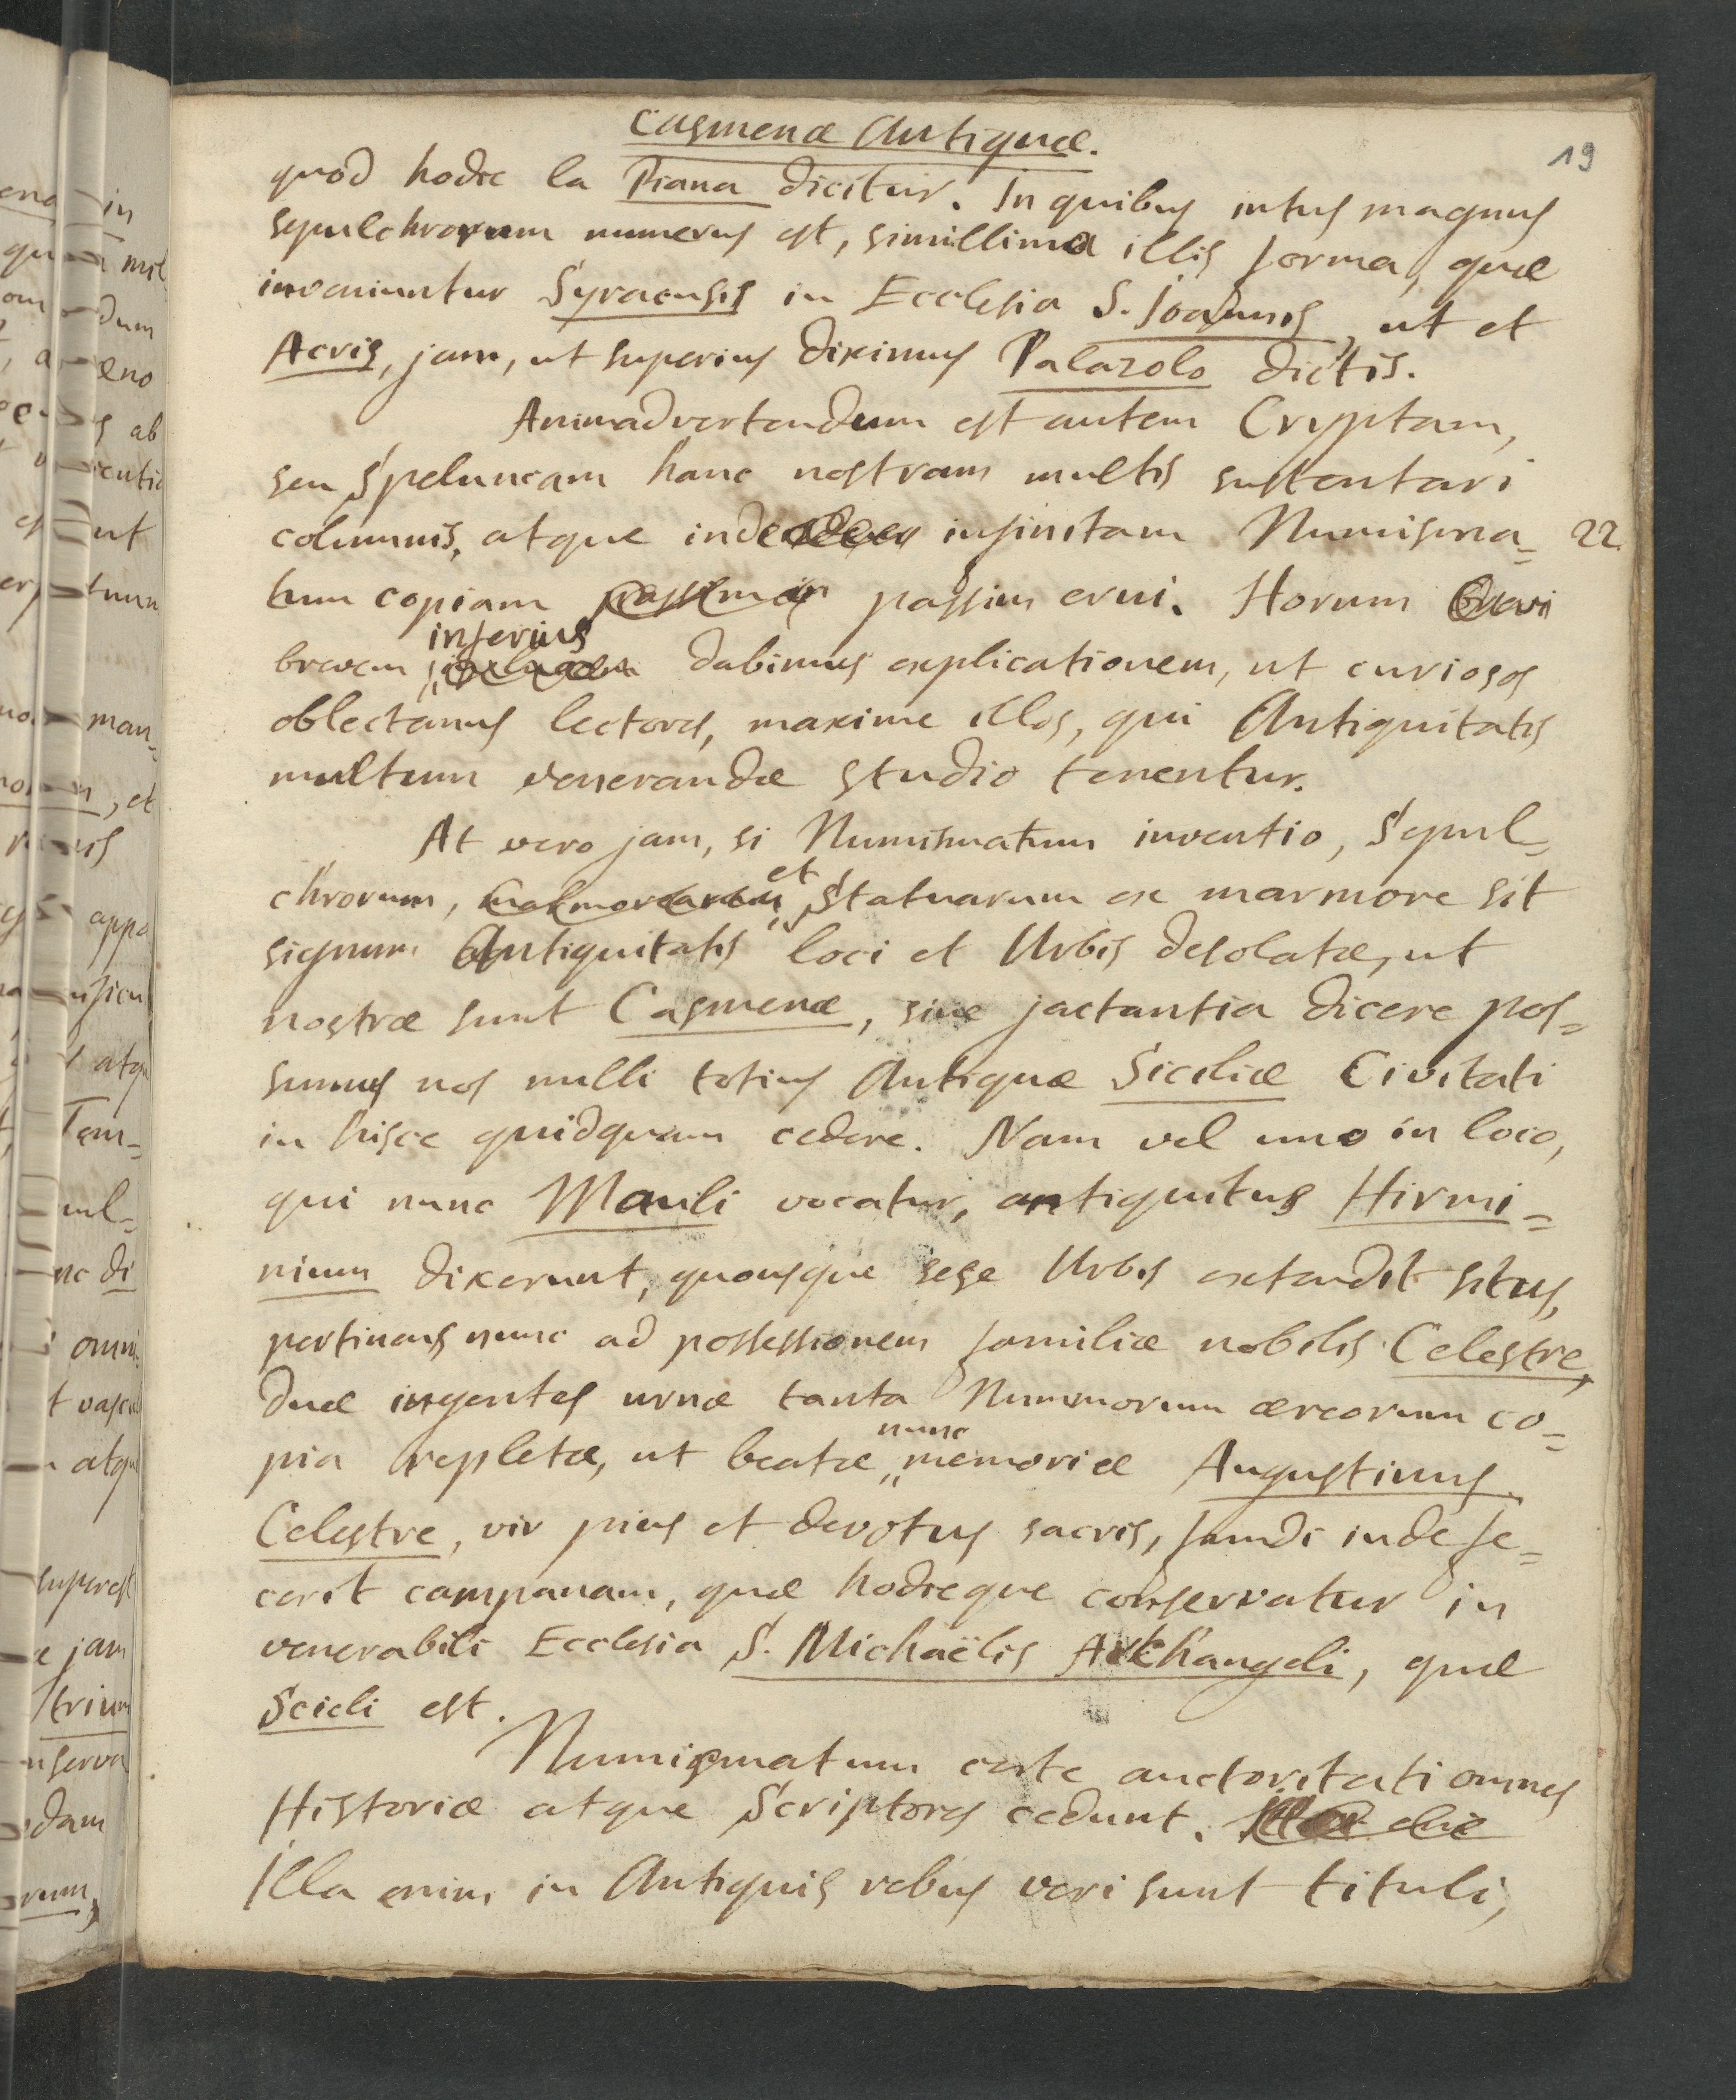 Casmenæ Antiquæ.
19
quod hodie la Piana dicitur. In quibus intus magnus
sepulchrorum numerus est, simillima illis forma, quæ
inveniuntur Syracusis in Ecclesia S. Joannis, ut et
Acris, jam, ut superius diximus Palazolo dictis.
Animadvertendum est autem Cryptam,
seu Speluncam hanc nostram multis sustentari
columnis, atque inde infinitam Numisma= 22.
tum copiam passim erui. Horum
inferius
brevem dabimus explicationem, ut curiosos
oblectamus lectores, maxime illos, qui Antiquitatis
multum venerandæ studio tenentur.
At vero jam, si Numismatum inventio, Sepul=
et
chrorum, Statuarum ex marmore sit
signum Antiquitatis loci et Urbis desolatæ, ut
nostræ sunt Casmenæ, sine jactantia dicere pos=
sumus nos nulli totius Antiquæ Siciliæ Civitati
in hisce quidquam cedere. Nam vel uno in loco,
qui nunc Mauli vocatur, antiquitus Hirmi=
nium dixerunt, quousque sese Urbis extendit situs,
pertinens nunc ad possessionem familiæ nobilis Celestre,
duæ ingentes urnæ tanta Nummorum æreorum co=
nunc
pia repletæ, ut beatæ memoriæ Augustinus
Celestre, vir pius et devotus sacris, fundi inde fe=
cerit campanam, quæ hodieque conservatur in
venerabili Ecclesia S. Michaëlis Archangeli, quæ
Scicli est.
Numismatum certe auctoritati omnes
Historiæ atque Scriptores cedunt.
Illa enim in Antiquis rebus veri sunt tituli,